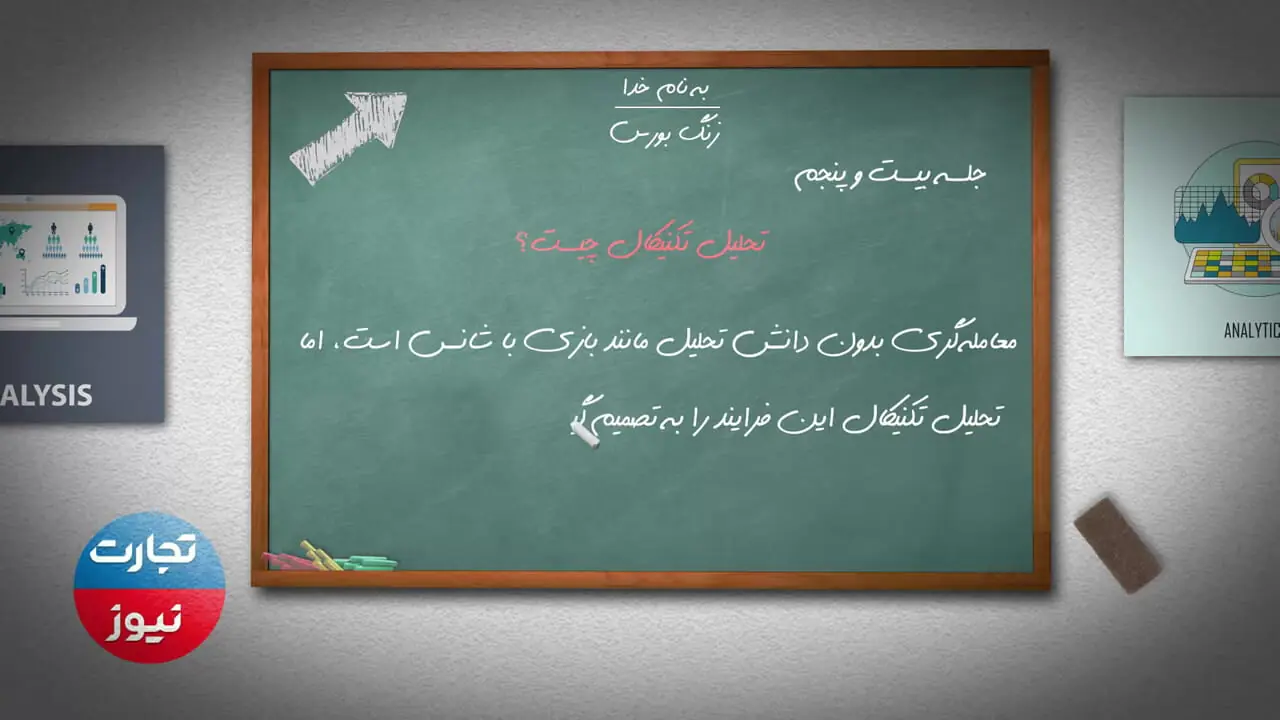 به نام خدا
زنگ بورس
جلسه بیست و پنجم
تحلیل تکنیکال چیست؟
معامله‌گری بدون دانش تحلیل مانند بازی با شانس است، اما
تحلیل تکنیکال این فرایند را به تصمیم‌گی
ALYSIS
ANALYTIC
تجارت
نیوز